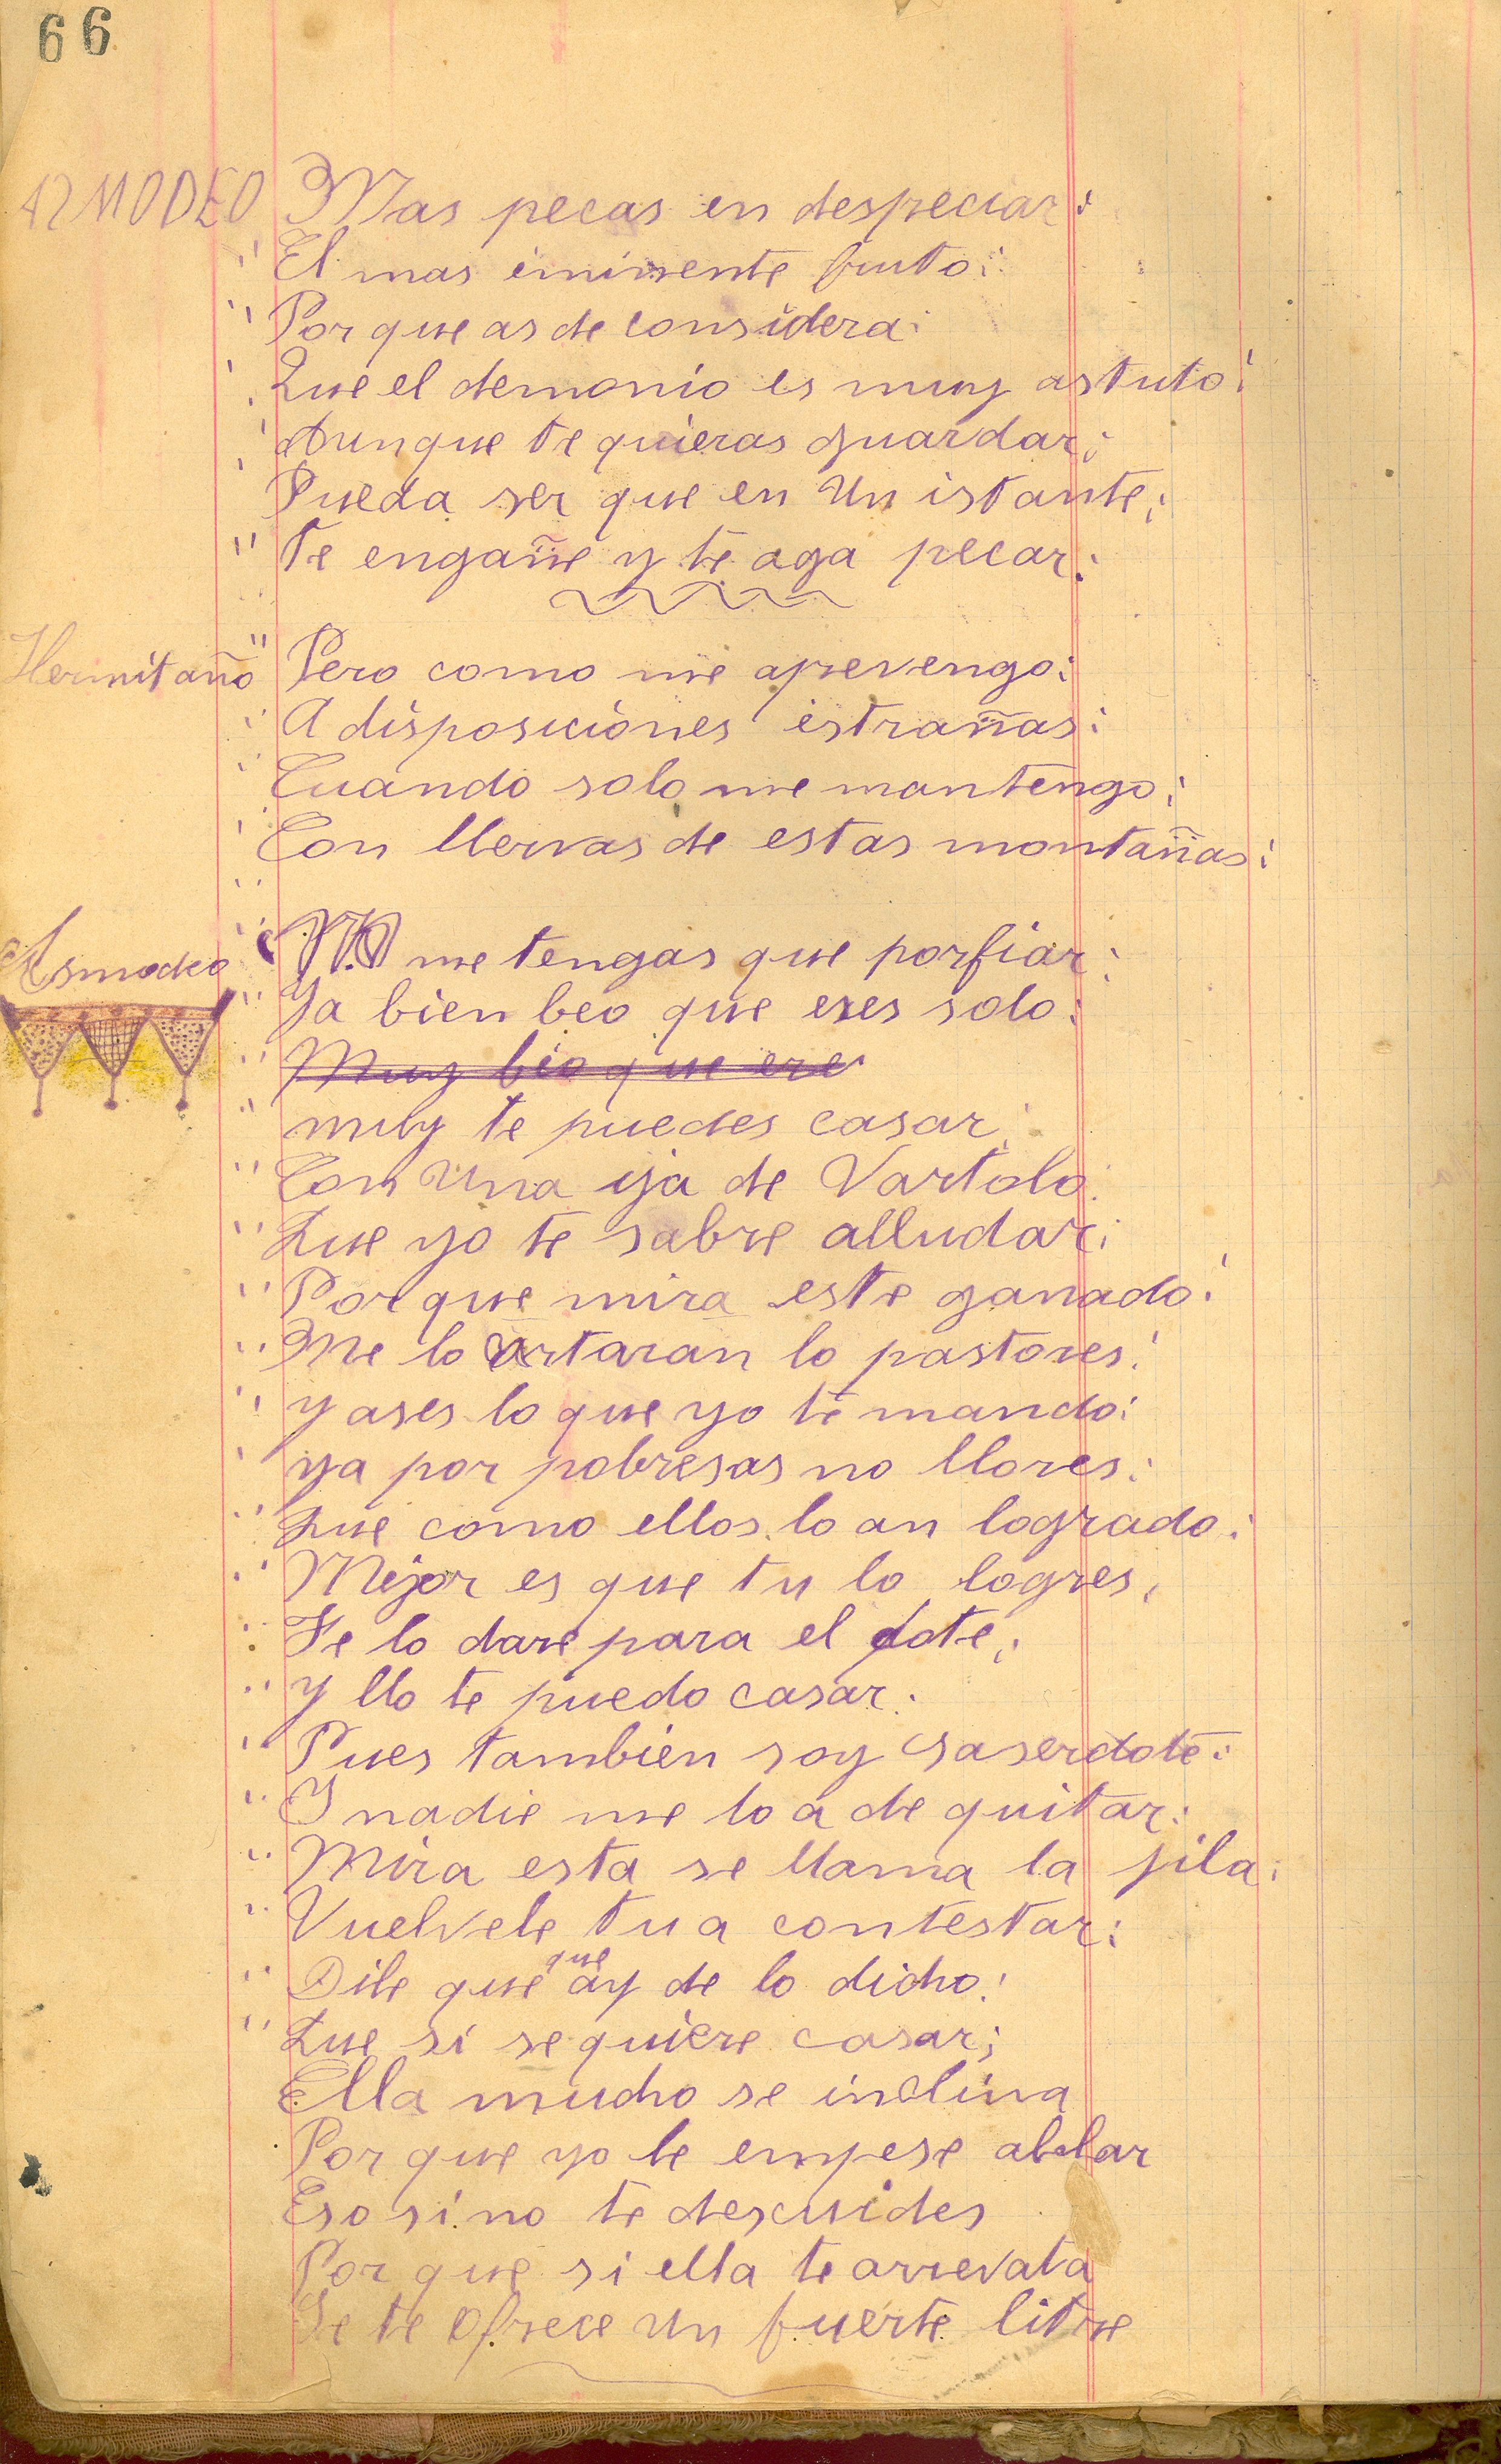 66
AZMODEO Mas pecas en despeciar:
El mas iminente fruto:
Por que as de considera:
Que el demonio es muy astuto:
Aunque te quieras guardar;
Pueda ser que en Un istante;
Te engañe y te aga pecar:
Hermitaño Pero como me aprevengo:
A disposiciones estrañas:
Cuando solo me mantengo;
Con llervas de estas montañas:
Asmodeo No me tengas que porfiar:
Ya bien beo que eres solo:
Muy beo que ere
muy te puedes casar;
Con Una ija de Vartolo.
Que yo te sabre alludar;
Por que mira este ganado:
Me lo cortaran lo pastores:
y ases lo que yo te mando:
ya por pobresas no llores:
Que como ellos lo an logrado:
Mejor es que tu lo logres,
Te lo dare para el dote;
Y llo te puedo casar.
Pues tambien soy saserdote:
I nadie me lo a de quitar:
Mira esta se llama la jila:
Vuelvele tu a contestar:
que
Dile que ay de lo dicho:
Que si se quiere casar;
Ella mucho se inclina
Por que yo le empese ablar
Eso si no te descuides
Por que si ella te arrevata
Se te ofrece Un fuerte litre